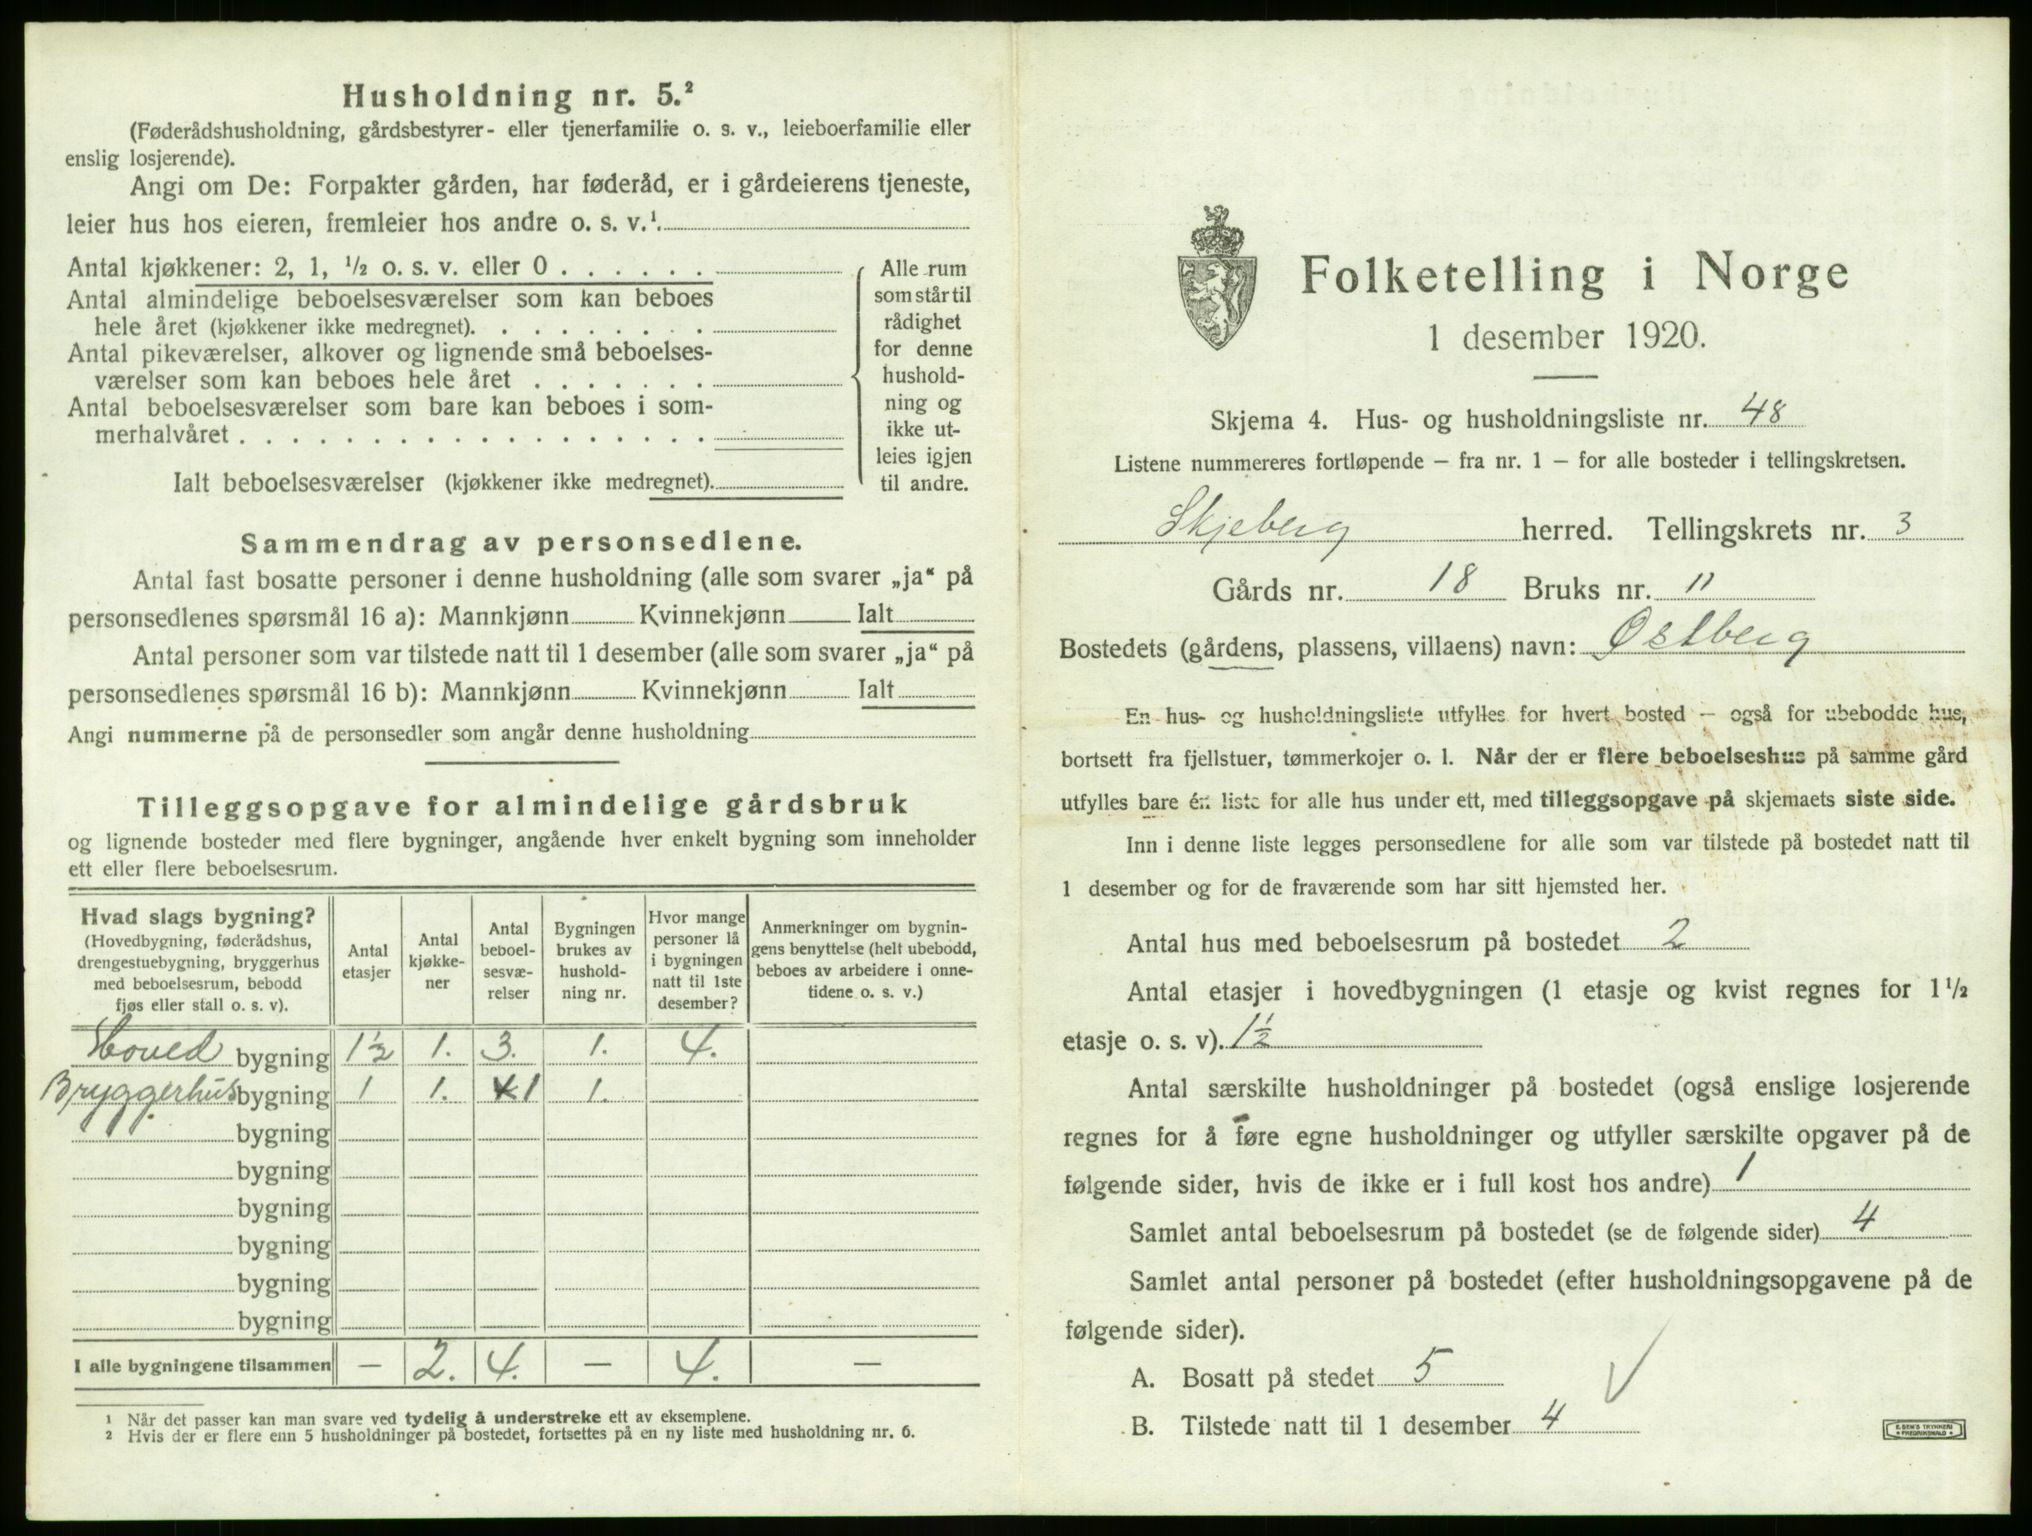 Husholdning nr. 5.²
(Føderådshusholdning, gårdsbestyrer- eller tjenerfamilie o. s. v., leieboerfamilie eller
enslig losjerende).
Angi om De: Forpakter gården, har føderåd, er i gårdeierens tjeneste,
leier hus hos eieren, fremleier hos andre o. s. v.¹.
Antal kjøkkener: 2, 1, ½ o. s. v. eller 0 . . . . . .
Antal almindelige beboelsesværelser som kan beboes
hele året (kjøkkener ikke medregnet). . . . . . . . .
Antal pikeværelser, alkover og lignende små beboelses-
værelser som kan beboes hele året . . . . . . .
Antal beboelsesværelser som bare kan beboes i som-
merhalvåret . . . . . . . . . . . . . . . . . .
Ialt beboelsesværelser (kjøkkener ikke medregnet).
Alle rum
som står til
rådighet
for denne
hushold-
ning og
ikke ut-
leies igjen
til andre.
Sammendrag av personsedlene.
Antal fast bosatte personer i denne husholdning (alle som svarer „ja“ på
personsedlenes spørsmål 16 a): Mannkjønn Kvinnekjønn Ialt
Antal personer som var tilstede natt til 1 desember (alle som svarer „ja“ på
personsedlenes spørsmål 16 b): Mannkjønn Kvinnekjønn Ialt
Angi nummerne på de personsedler som angår denne husholdning
Tilleggsopgave for almindelige gårdsbruk
og lignende bosteder med flere bygninger, angående hver enkelt bygning som inneholder
ett eller flere beboelsesrum.
Hvad slags bygning?
(Hovedbygning, føderådshus,
drengestuebygning, bryggerhus
med beboelsesrum, bebodd
fjøs eller stall o. s. v).
Antal
etasjer
Antal
kjøkke-
ner
Antal
beboel-
sesvæ-
relser
Bygningen
brukes av
hushold-
ning nr.
Hvor mange
personer lå
i bygningen
natt til 1ste
desember?
Anmerkninger om bygnin-
gens benyttelse (helt ubebodd,
beboes av arbeidere i onne-
tidene o. s. v.)
Hoved bygning 1½ 1. 3. 1. 4.
Bryggerhus bygning 1 1. 1 1.
bygning
bygning
bygning
bygning
bygning
bygning
I alle bygningene tilsammen — 2. 4. — 4. —
1 Når det passer kan man svare ved tydelig å understreke ett av eksemplene.
2 Hvis der er flere enn 5 husholdninger på bostedet, fortsettes på en ny liste med husholdning nr. 6.
Folketelling i Norge
1 desember 1920.
Skjema 4. Hus- og husholdningsliste nr. 48
Listene nummereres fortløpende – fra nr. 1 – for alle bosteder i tellingskretsen.
Skjeberg herred. Tellingskrets nr. 3
Gårds nr. 18 Bruks nr. 11
Bostedets (gårdens, plassens, villaens) navn: Østberg
En hus- og husholdningsliste utfylles for hvert bosted – også for ubebodde hus,
bortsett fra fjellstuer, tømmerkojer o. l. Når der er flere beboelseshus på samme gård
utfylles bare én liste for alle hus under ett, med tilleggsopgave på skjemaets siste side.
Inn i denne liste legges personsedlene for alle som var tilstede på bostedet natt til
1 desember og for de fraværende som har sitt hjemsted her.
Antal hus med beboelsesrum på bostedet 2
Antal etasjer i hovedbygningen (1 etasje og kvist regnes for 1½
etasje o. s. v). 1½
Antal særskilte husholdninger på bostedet (også enslige losjerende
regnes for å føre egne husholdninger og utfyller særskilte opgaver på de
følgende sider, hvis de ikke er i full kost hos andre) 1
Samlet antal beboelsesrum på bostedet (se de følgende sider) 4
Samlet antal personer på bostedet (efter husholdningsopgavene på de
følgende sider).
A. Bosatt på stedet 5
B. Tilstede natt til 1 desember 4